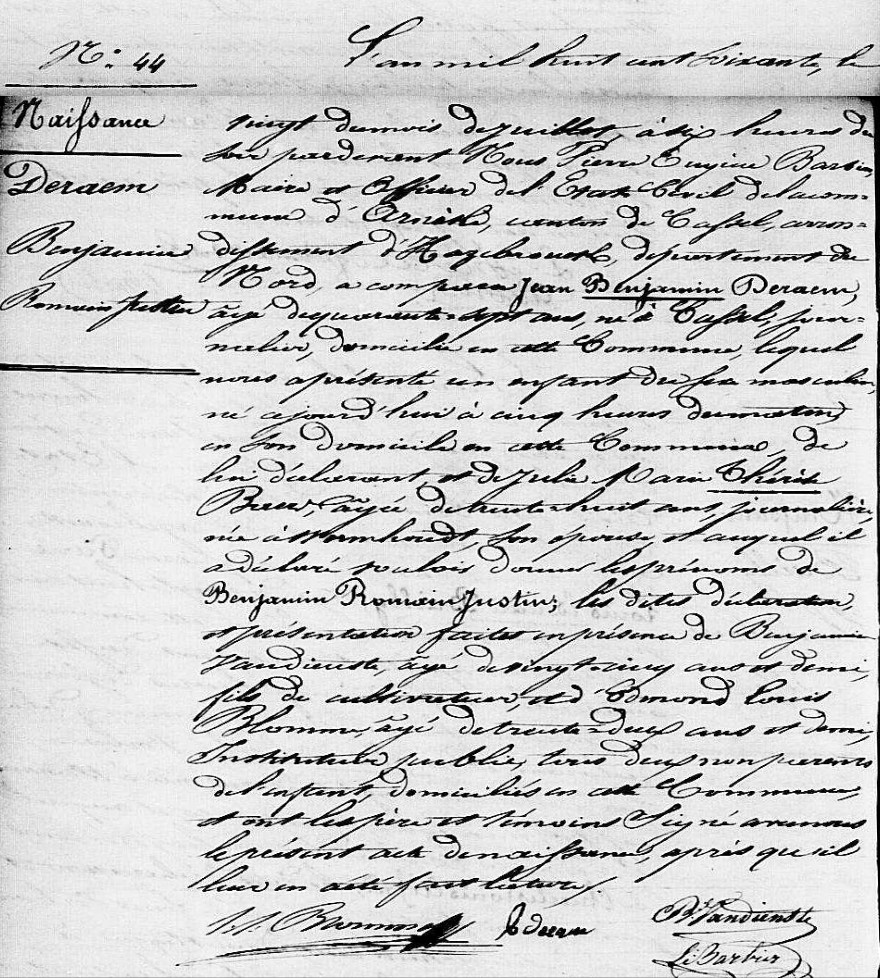 N.° 44
L'an mil huit cent soixante, le
Naissance
Deraem
Benjamin
Romain Justin
vingt du mois de Juillet, à six heures du
soir pardevant Nous Pierre Eugène Barbier,
Maire et Officier de l'Etat Civil de la com-
mune d'Arnèke, canton de Cassel, arron-
dissement d'Hazebrouck, département du
Nord, a comparu Jean Benjamin Deraem,
âgé de quarante-sept ans, né à Cassel, jour-
nalier, domicilié en cette Commune, lequel
nous a présenté un enfant du sexe masculin,
né cejourd'hui à cinq heures du matin,
en son domicile en cette Commune, de
lui déclarant, et de Julie Marie Thérèse
âgée de trente-huit ans, journalière,
née à Wormhoudt, son épouse, et auquel il
a déclaré vouloir donner les prénoms de
Benjamin Romain Justin; les dites déclaration,
et présentation faites en présence de Benjamin
Vandienste, âgé de vingt-cinq ans et demi,
fils de cultivateur, et d'Edmond Louis
Blomme, âgé de trente-deux ans et demi,
Instituteur public, tous deux non parents
de l'enfant, domiciliés en cette Commune,
et ont les père et témoins Signé avec nous
le présent acte de naissance, après qu'il
leur en a été fait lecture.
B. Vandienste
Barbier